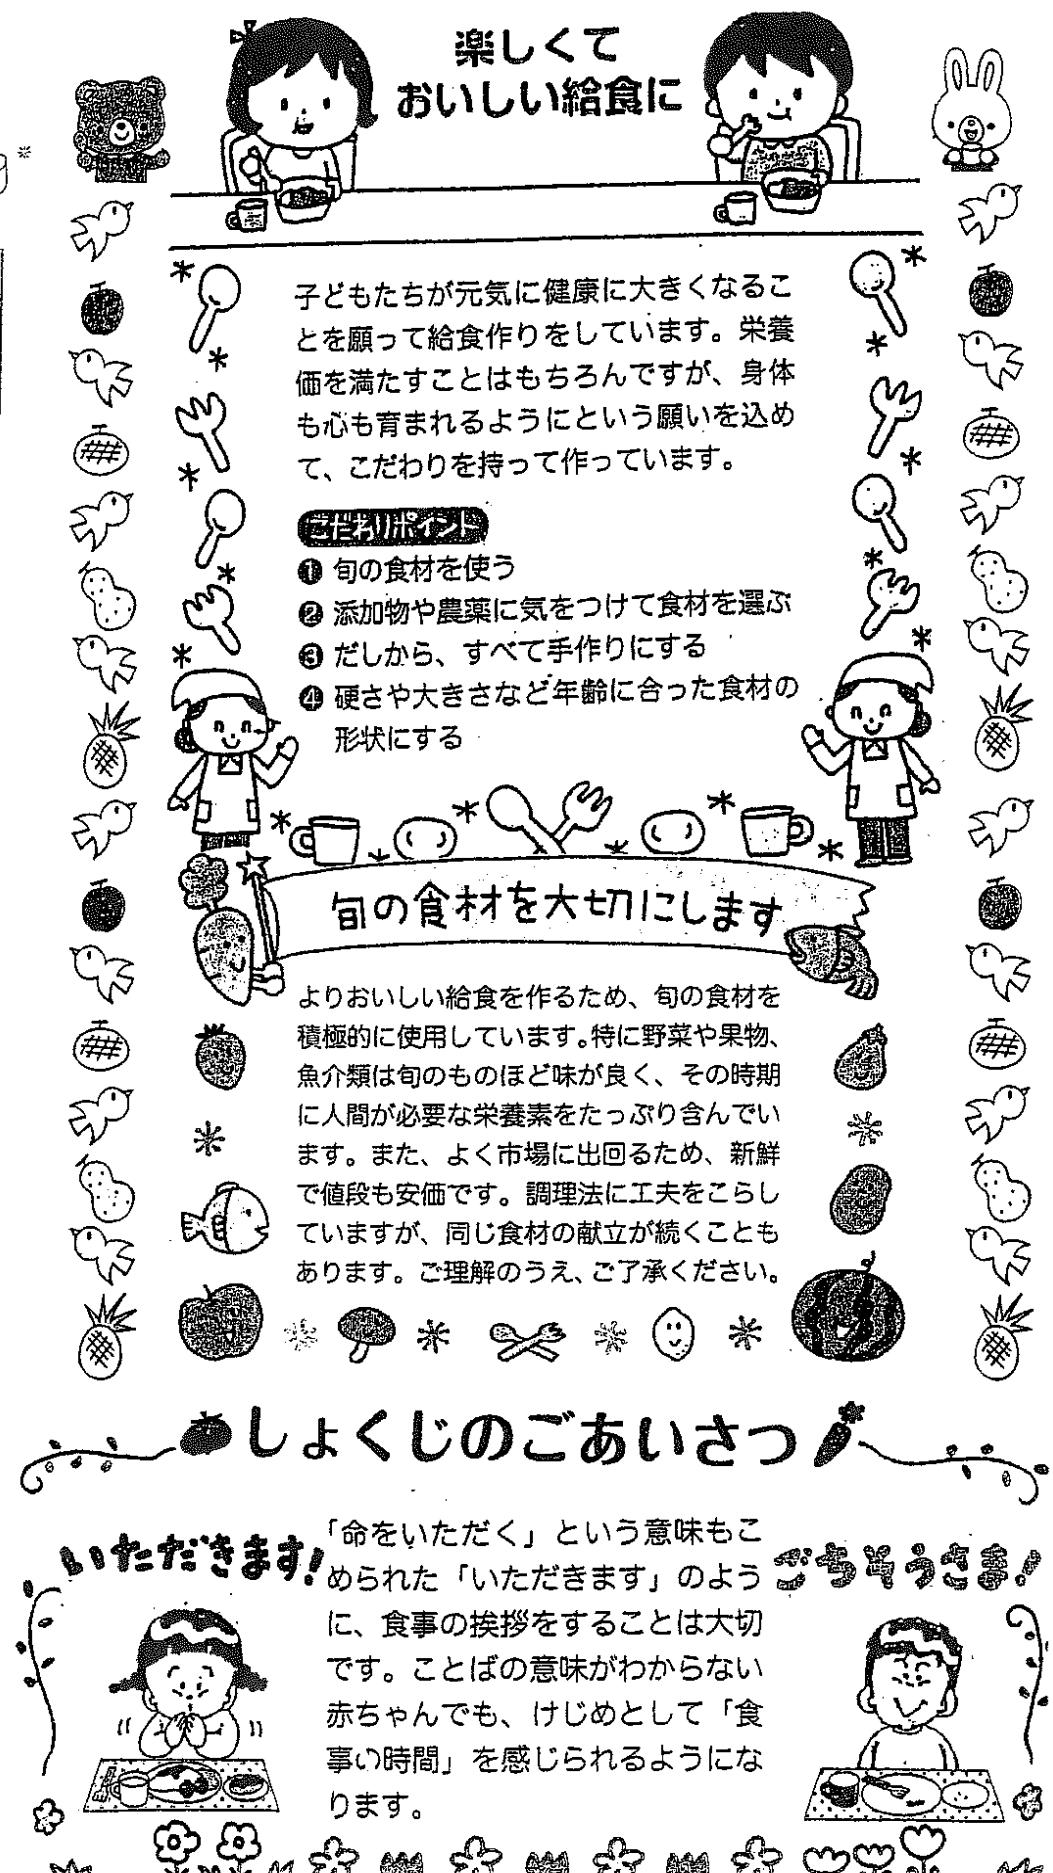 楽しくて
おいしい給食に
子どもたちが元気に健康に大きくなるこ
とを願って給食作りをしています。栄養
価を満たすことはもちろんですが、身体
も心も育まれるようにという願いを込め
て、こだわりを持って作っています。
こだわりポイント
❶ 旬の食材を使う
❷ 添加物や農薬に気をつけて食材を選ぶ
❸ だしから、すべて手作りにする
❹ 硬さや大きさなど年齢に合った食材の
形状にする
旬の食材を大切にします
よりおいしい給食を作るため、旬の食材を
積極的に使用しています。特に野菜や果物、
魚介類は旬のものほど味が良く、その時期
に人間が必要な栄養素をたっぷり含んでい
ます。また、よく市場に出回るため、新鮮
で値段も安価です。調理法に工夫をこらし
ていますが、同じ食材の献立が続くことも
あります。ご理解のうえ、ご了承ください。
しょくじのごあいさつ
いただきます!
「命をいただく」という意味もこ
められた「いただきます」のよう
に、食事の挨拶をすることは大切
です。ことばの意味がわからない
赤ちゃんでも、けじめとして「食
事の時間」を感じられるようにな
ります。
ごちそうさま!